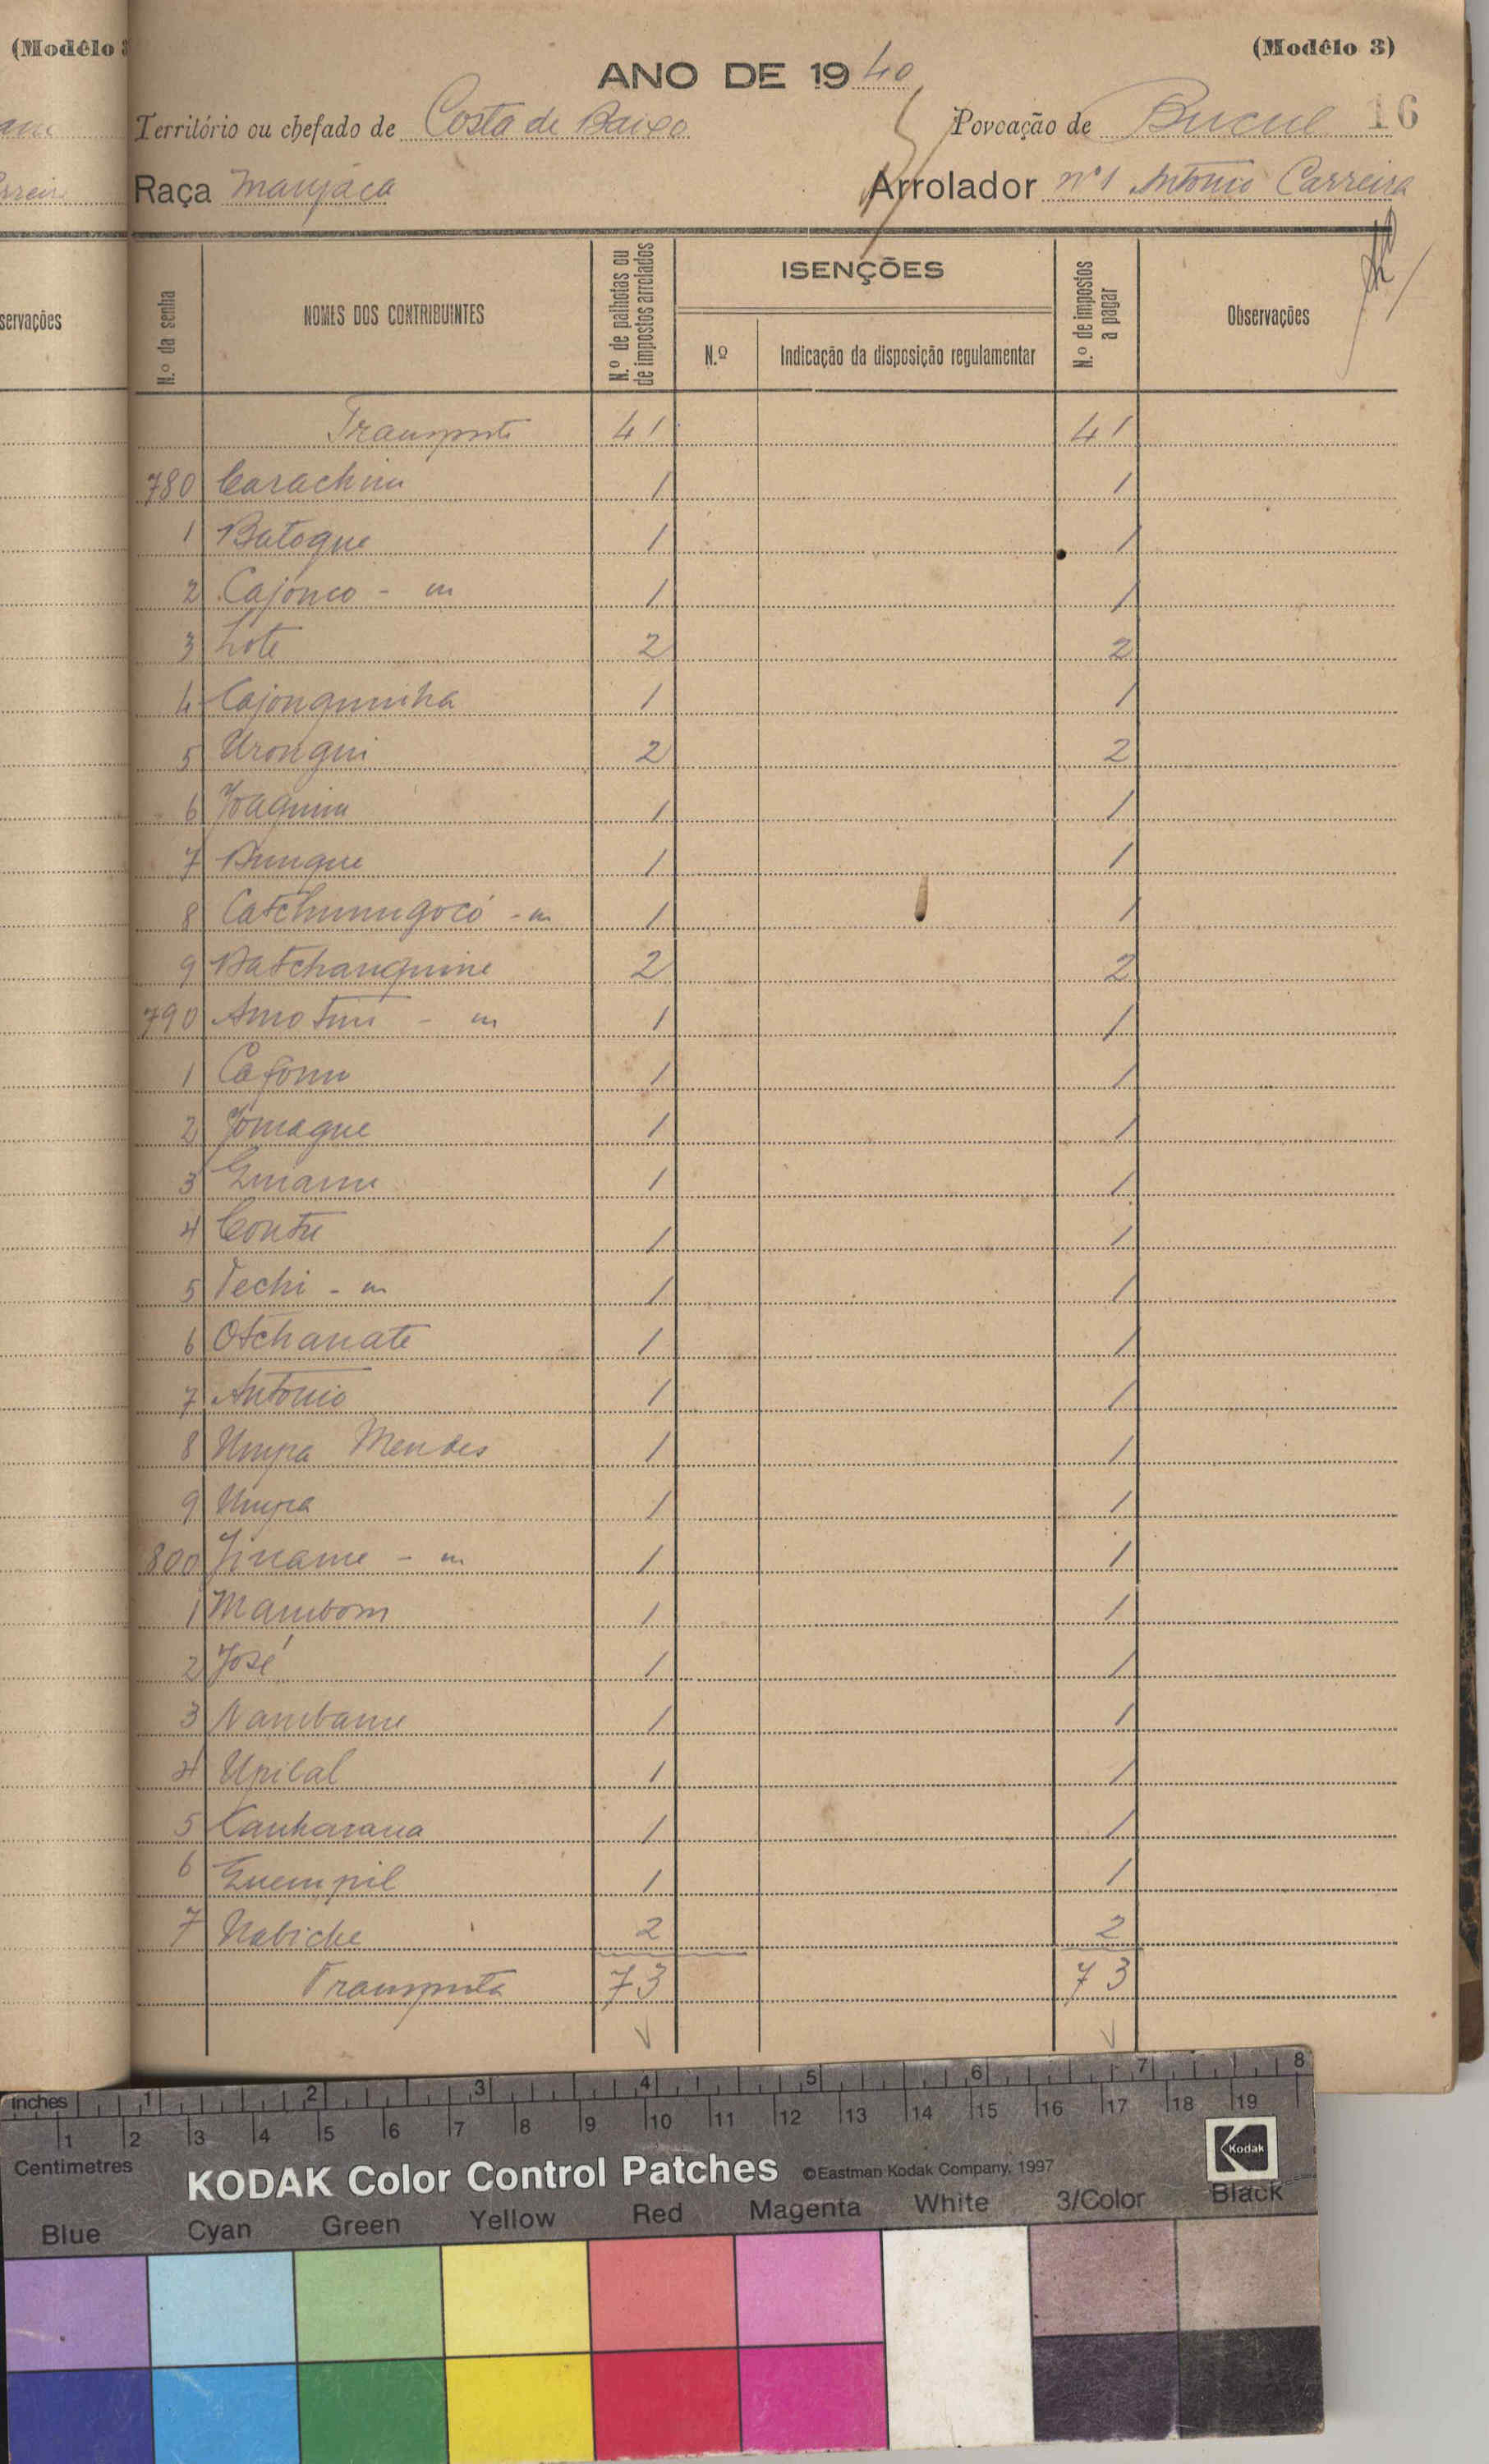 (Modêlo 3
(Modêlo 3)
ANO DE 1940
16
Território ou chefado de Costa de Baixo Povoação de Bucul
Raça Manjaca Arrolador nº1 António Carreira
servações
N.º da senha
NOMES DOS CONTRIBUINTES
N.º de palhotas ou de impostos arrolados
ISENÇÕES
N.º
Indicação da disposição regulamentar
N.º de impostos a pagar
Observações
Transporte 41 41
780 Carachim 1 1
1 Batoque 1 1
2 Cajonco - m 1 1
3 Lote 2 2
4 Cajonguinha 1 1
5 Urongui 2 2
6 Joaquim 1 1
7 Bunque 1 1
8 Catchumugocó - m 1 1
9 Batchanguine 2 2
790 1 1
1 Cafomu 1 1
2 Jomague 1 1
3 1 1
4 Contu 1 1
5 Techi - m 1 1
6 Otchanate 1 1
7 António 1 1
8 Umpa Mendes 1 1
9 Umpa 1 1
800 Jiname - m 1 1
1 Mambom 1 1
2 José 1 1
3 Nambame 1 1
4 Upilal 1 1
5 Canharana 1 1
6 Guempil 1 1
7 Nabiche 2 2
Transporta 73 73
inches 1 2 3 4 5 6 7 8
1 2 3 4 5 6 7 8 9 10 11 12 13 14 15 16 17 18 19
Centimetres
KODAK Color Control Patches ©Eastman Kodak Company, 1997 Kodak
Blue Cyan Green Yellow Red Magenta White 3/Color Black